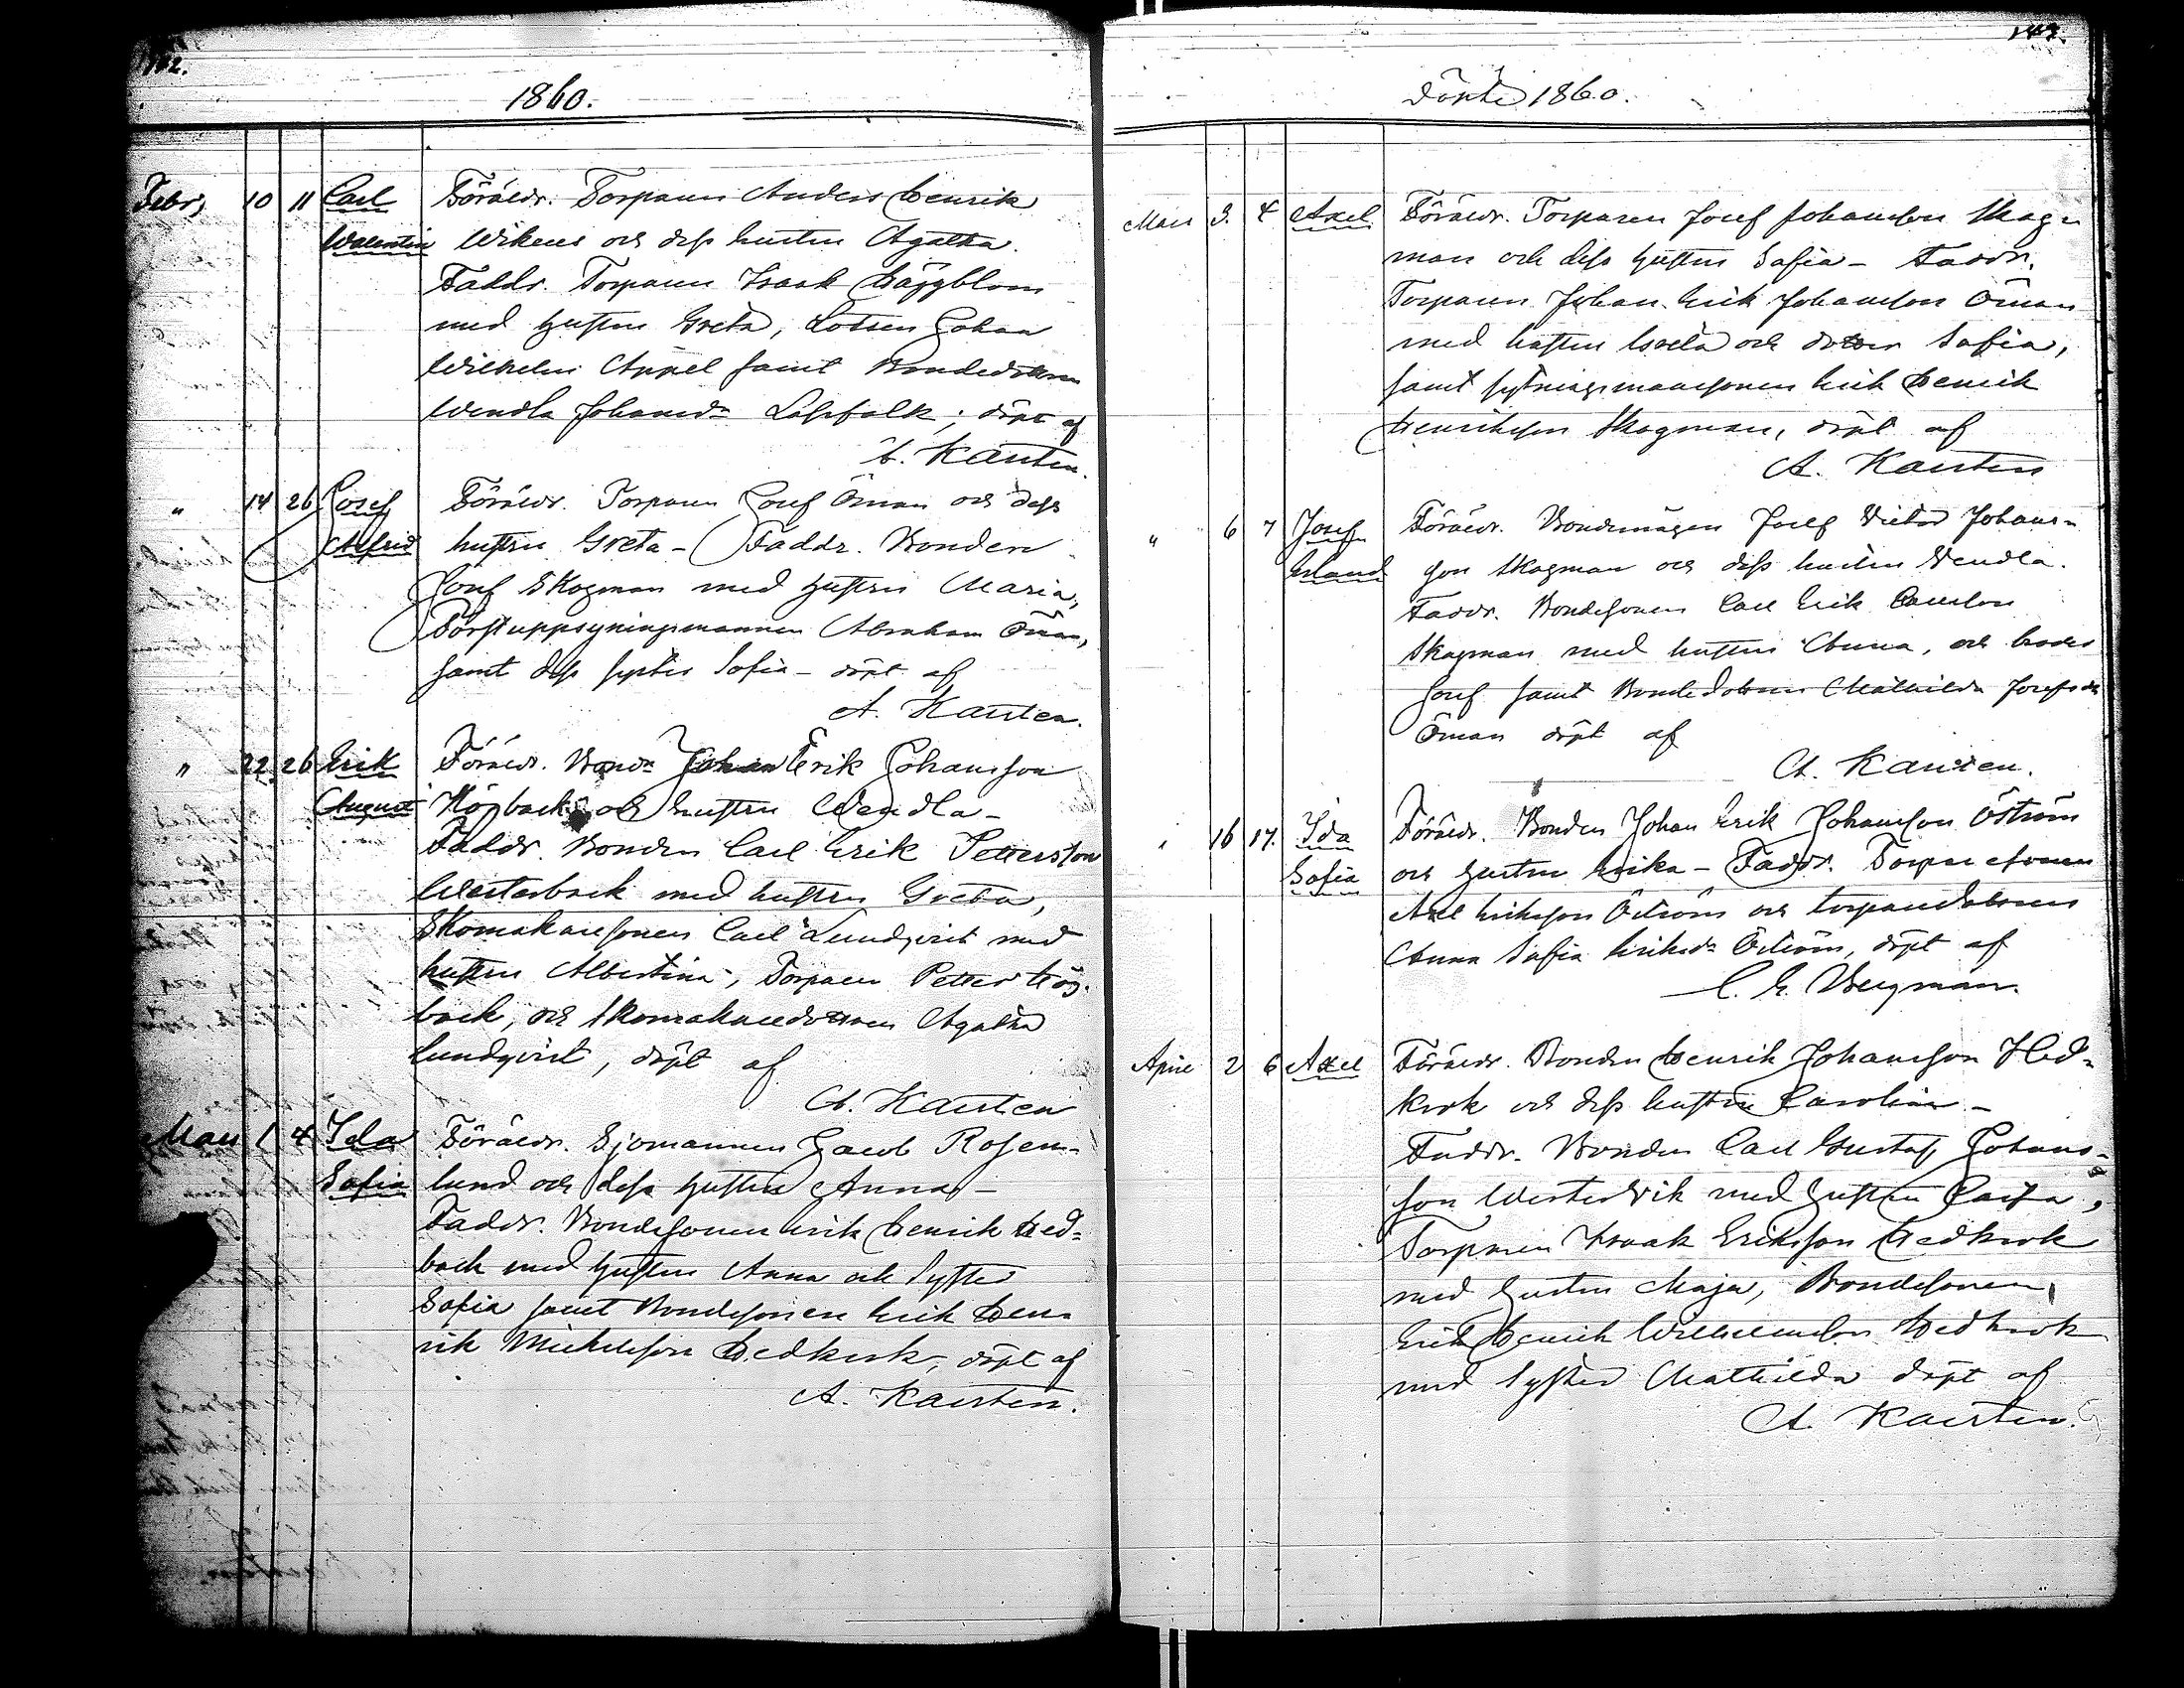 142.
1860.
Febr, 10 11 Carl Föräldr. Torparen Anders Henrik
Walentin Wikens och dess hustru Agatha.
Faddr. Torparen Isaak Häggblom
med hustru Greta, Lotsen Johan
Wilhelm Appel samt Bondedottren
Wendla Johansdr Lassfolk; döpt af
A. Karsten.
" 14 26 Josef Föräldr. Torparen Josef Öman och dess
Alfrid hustru Greta - Faddr. Bonden
Josef Skogman med hustru Maria,
Forstuppsyningsmannen Abraham Öman,
samt dess syster Sofia - döpt af
A. Karsten.
" 22 26 Erik Föräldr. Bond. Johan Erik Johansson
August Högback och hustru Wendla -
Faddr. Bonden Carl Erik Pettersson
Westerback med hustru Greta,
Skomakaresonen Carl Lundqvist med
hustru Albertina, Torparen Petter Hög-
back, och Skomakaredottren Agatha
Lundqvist, döpt af
A. Karsten
Mars 1 4 Ida Föräldr. Sjömannen Jacob Rosen-
Sofia lund och dess hustru Anna -
Faddr. Bondesonen Erik Henrik Hed-
back med hustru Anna och Syster
Sofia samt Bondesonen Erik Hen-
rik Mickelsson Hedkrok, döpt af
A. Karsten.
143.
Döpte 1860.
Mars 3. 4 Axel Föräldr. Torparen Josef Johansson Skog-
man och dess hustru Sofia - Faddr.
Torparen Johan Erik Johansson Öman
med hustru Greta och dotter Sofia,
samt sytningsmanssonen Erik Henrik
Henriksson Skogman, döpt af
A. Karsten
" 6 7 Josef Föräldr. Bondemågen Josef Victor Johans-
Erland son Skogman och dess hustru Wendla.
Faddr. Bondesonen Carl Erik Carlsson
Skogman med hustru Anna, och broder
Josef samt Bondedottren Mathilda Josefsdr
Öman döpt af
A. Karsten.
" 16 17. Ida Föräldr. Bonden Johan Erik Johansson Öström
Sofia och hustru Erika - Faddr. Torparesonen
Axel Eriksson Öström och torparedottren
Anna Sofia Eriksdr Öström, döpt af
C. E. Bergman.
April 2 6 Axel Föräldr. Bonden Henrik Johansson Hed-
krok och dess hustru Carolina -
Faddr. Bonden Carl Gustaf Johans-
son Westervik med hustru Caisa,
Torparen Isaak Eriksson Hedkrok
med hustru Maja, Bondesonen
Erik Henrik Wilhelmsson Hedkrok
med Syster Mathilda döpt af
A. Karsten.